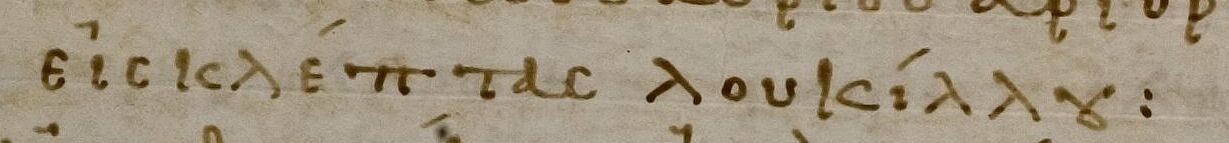 εἰς κλέπτας λουκίλλου: